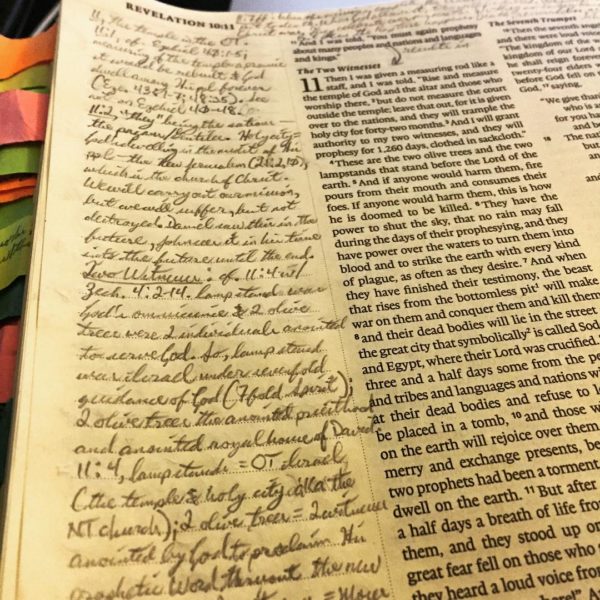 REVELATION 10:11
11, The temple in the OT.
11:1, cf. Ezekiel 40:5;
measuring the temple &
it would be rebuilt & God
dwell among His ppl forever
(Ezek 43:7, 9; 48:35). See
on Ezekiel 40-48.
11:2, "they" being the nations
the pagan Gentiles. Holy city =
God's dwelling in the midst of His
ppl - the New Jerusalem (21:2, 10),
which is the church of Christ.
We will carry out our mission,
but we will suffer, but not
destroyed. Daniel saw this in the
future, John see it in his time
into the future until the end.
Two Witnesses: cf. 11:4 w/
Zech. 4:2-14. lampstand was
God's omniscience & 2 olive
trees were 2 individuals anointed
to serve God. So, lampstand
was Israel under sevenfold
guidance of God (7 fold Spirit);
2 olive trees the anointed priesthood
and anointed royal house of David.
11:4, lampstands = OT Israel
(the temple & holy city aka the
NT church); 2 olive trees = 2 witnesses
anointed by God to proclaim His
prophetic Word throughout the new
And I was told, "You must again prophesy
about many peoples and nations and languages
and kings."
The Two Witnesses
11 Then I was given a measuring rod like a
staff, and I was told, "Rise and measure
the temple of God and the altar and those who
worship there, 2 but do not measure the court
outside the temple; leave that out, for it is given
over to the nations, and they will trample the
holy city for forty-two months. 3 And I will grant
authority to my two witnesses, and they will
prophesy for 1,260 days, clothed in sackcloth."
4 These are the two olive trees and the two
lampstands that stand before the Lord of the
earth. 5 And if anyone would harm them, fire
pours from their mouth and consumes their
foes. If anyone would harm them, this is how
he is doomed to be killed. 6 They have the
power to shut the sky, that no rain may fall
during the days of their prophesying, and they
have power over the waters to turn them into
blood and to strike the earth with every kind
of plague, as often as they desire. 7 And when
they have finished their testimony, the beast
that rises from the bottomless pit1 will make
war on them and conquer them and kill them
8 and their dead bodies will lie in the street
the great city that symbolically2 is called Sod
and Egypt, where their Lord was crucified.
three and a half days some from the pe
and tribes and languages and nations w
at their dead bodies and refuse to l
be placed in a tomb, 10 and those w
on the earth will rejoice over them
merry and exchange presents, be
two prophets had been a torment
dwell on the earth. 11 But after
a half days a breath of life from
them, and they stood up on
great fear fell on those who
they heard a loud voice from
The Seventh Trumpet
Then the seventh ange
and there were loud voice
"The kingdom of the w
the kingdom of our L
and he shall reign foreve
twenty-four elders
before God fell on
God, 17 saying,
"We give tha
who is an
for you ha
and be
18 The nat
but
an